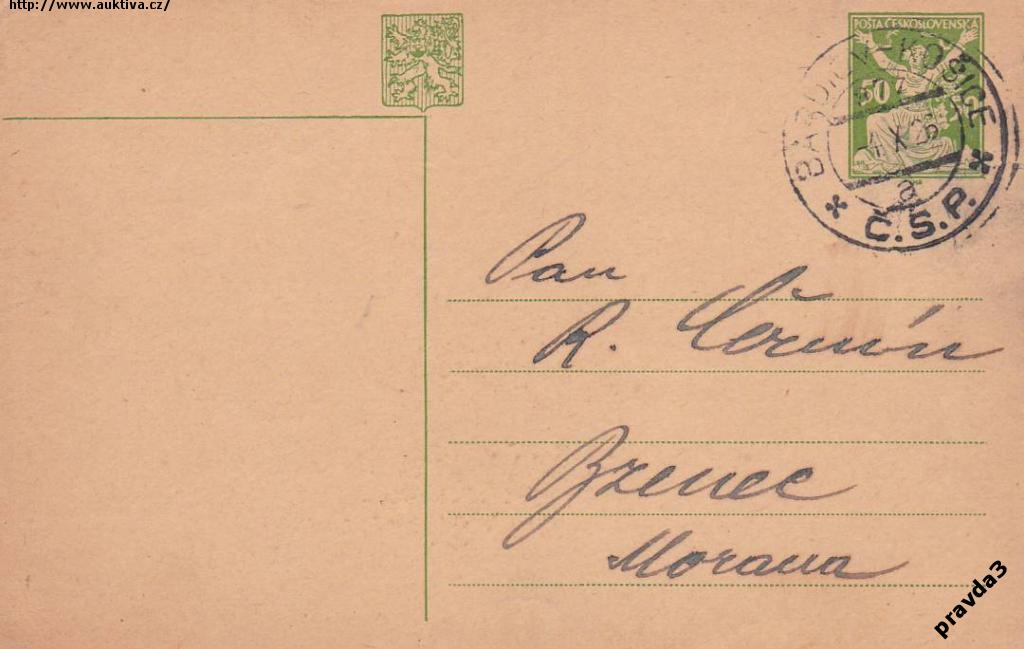 http://www.auktiva.cz/
POŠTA ČESKOSLOVENSKÁ
50
BARDIOV-KOŠICE
-4.X.26
a
Č.S.P.
Pan
R. Čermín
Bzenec
Morava
pravda3